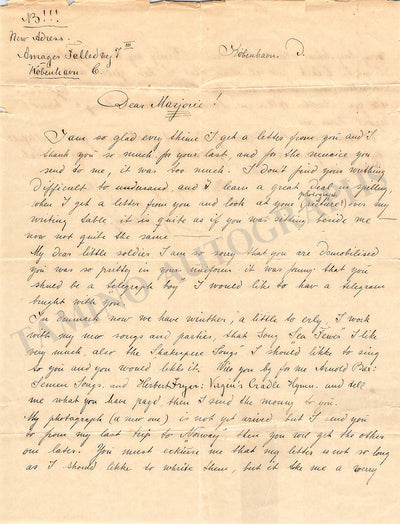 NB!!!
New Adress.
Amager Fælledvej 7 III
København. C.
København. D.
Dear Marjorie!
I am so glad evry thime I get a letter from you and I
thank you so much for your last, and for the you
send to me, it was too much. I don't find your writhing
Difficult to undersand, and I learn a great Deal in spelling,
when I get a letter from you and look at your (picture!) over my
photograph
writing table it is quite as if you was sitting beside me—
now not quite the same
My dear little soldier I am so sorry that you are Demobilised
you was so pretty in your uneform it was funny that you
should be a telegraph boy I would like to hav a telegram
bught with you.
In Danmark now we have wenther, a little to erly. I work
with my new songs and parties, that song "Sea Fever" I like
very much, also the "Shakespere Songs" I should likke to sing
to you and you would likke it. Will you by for me Arnold Bax:
Songs. and Herbert Fryer: Virgin's Cradle Hymn. and tell
me what you have payd, then I send the money to you.
My photograph (a new one) is not yet arived but I send you
to from my last trip to "Norway" then you will get the others
one later. You must exkuse me that my letter is not so long
as I should likke to whrite them, but it take me a werry
TAMINO AUTOGRAPHS